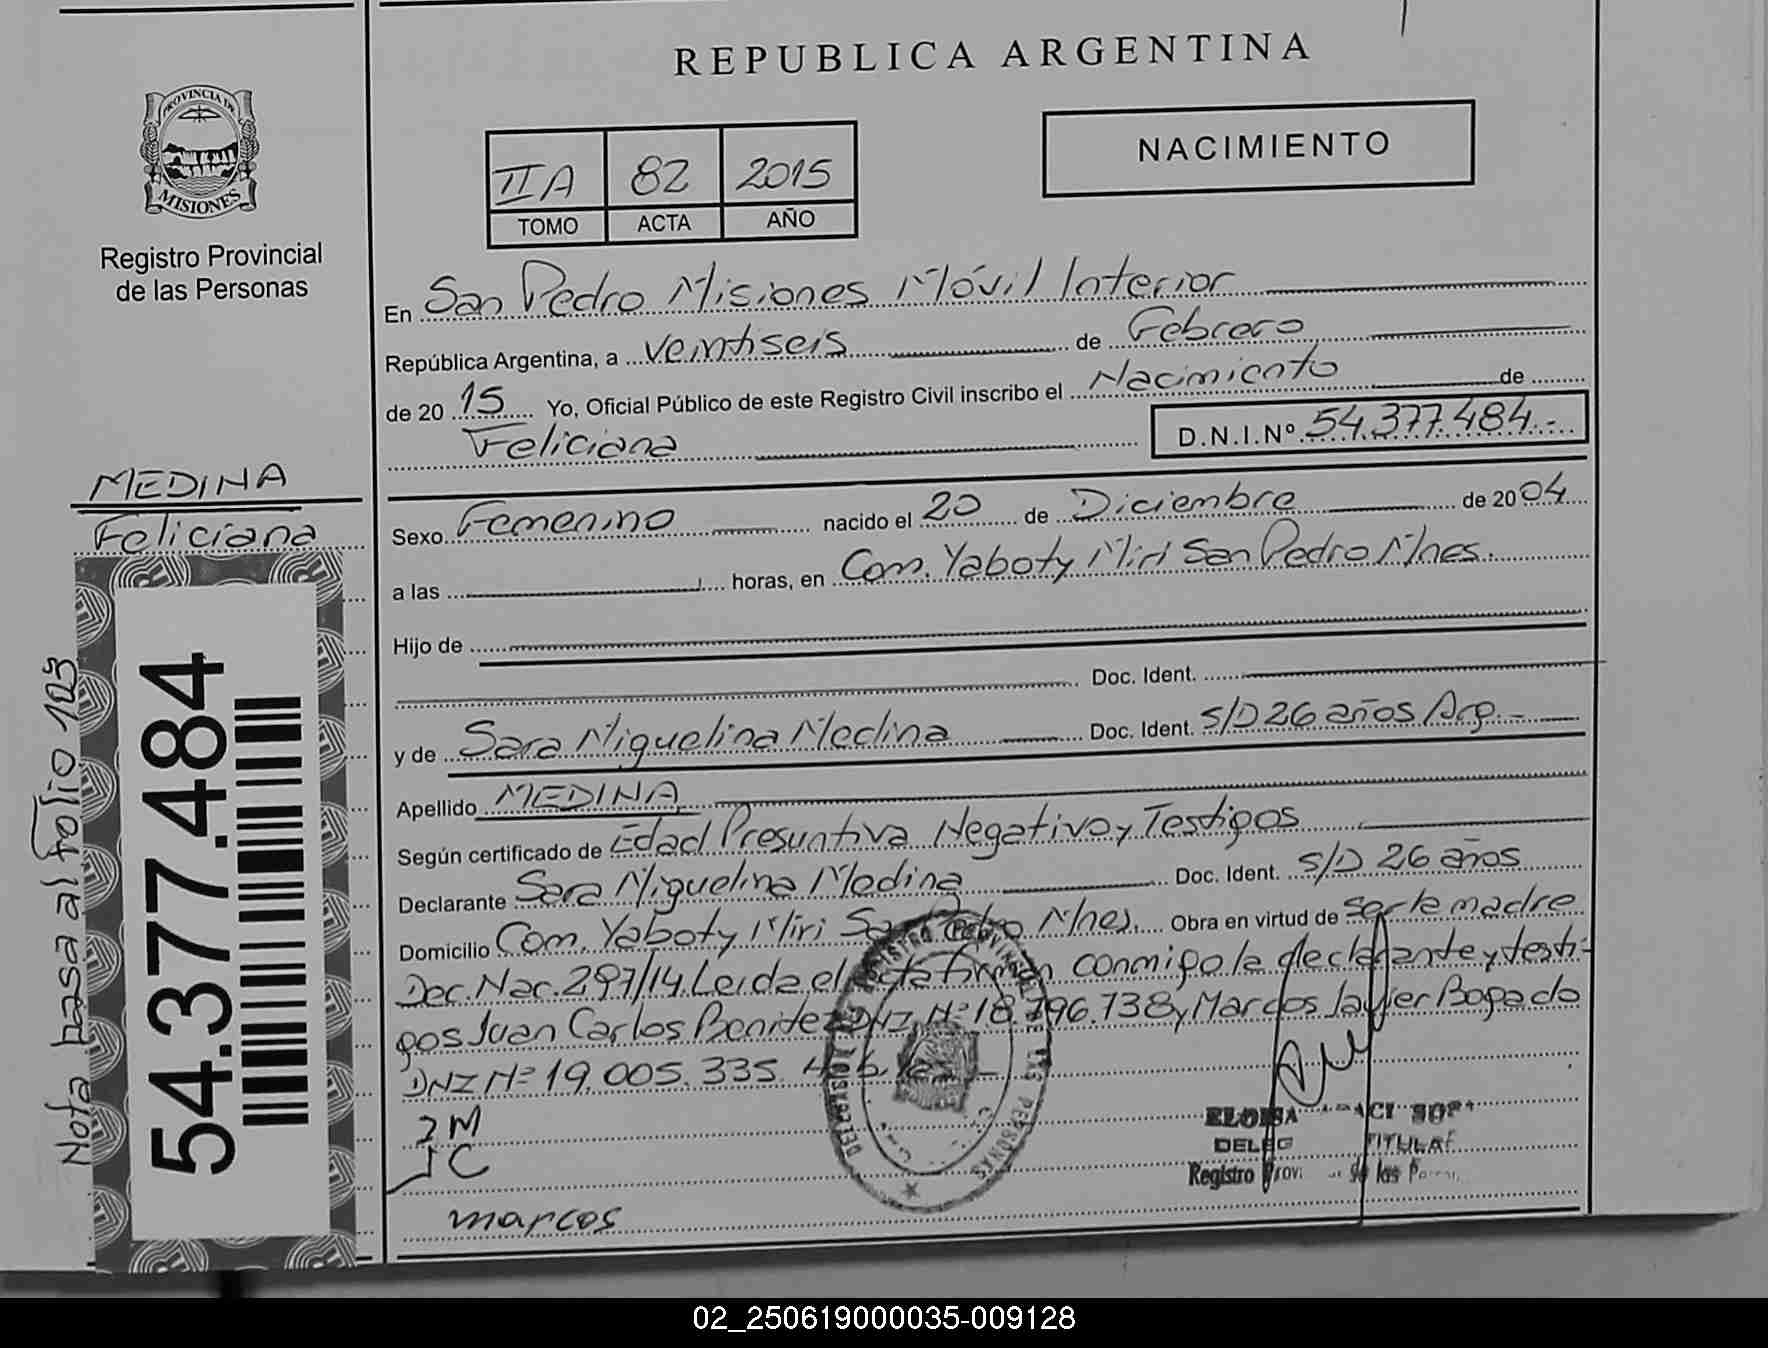 REPUBLICA ARGENTINA
PROVINCIA DE
MISIONES
Registro Provincial
de las Personas
NACIMIENTO
IIA 82 2015
TOMO ACTA AÑO
En San Pedro Misiones Móvil Interior
República Argentina, a veintiseis de Febrero
de 20 15 Yo, Oficial Público de este Registro Civil inscribo el Nacimiento de
Feliciana D.N.I.Nº 54.377.484.-
MEDINA
Feliciana
Sexo Femenino nacido el 20 de Diciembre de 20 04
a las horas, en Com. Yaboty Miri San Pedro Mnes.
Hijo de
Doc. Ident.
y de Sara Miguelina Medina Doc. Ident. S/D 26 años Arg.-
Apellido MEDINA
Según certificado de Edad Presuntiva Negativa y Testigos
Declarante Sara Miguelina Medina Doc. Ident. S/D 26 años
Domicilio Com. Yaboty Miri San Pedro Mnes. Obra en virtud de ser la madre
Dec. Nac. 297/14. Leida el acta firman conmigo la declarante y testi-
gos Juan Carlos Benitez DNI Nº 18.796.738 y Marcos Javier Bogado
DNI Nº 19.005.335
JM
JC
marcos
Nota pasa al folio 125
54.377.484
ELOISA
TITULAR
Registro Prov. de las
02_250619000035-009128